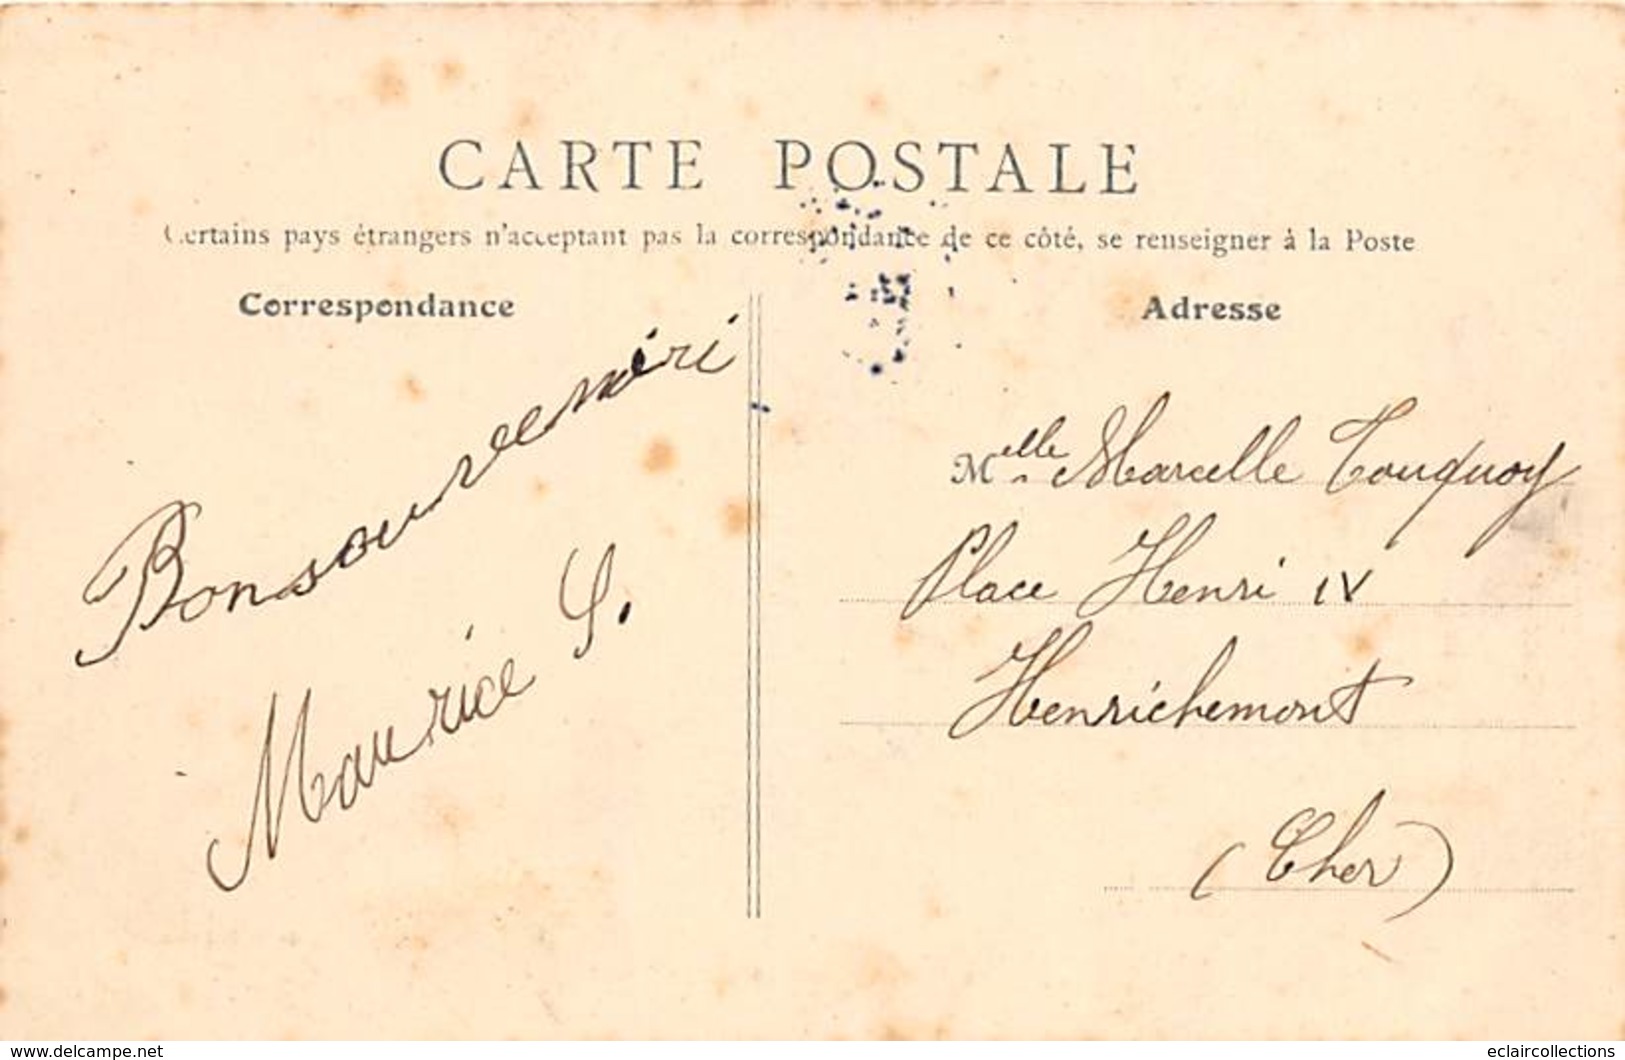 CARTE POSTALE
Certains pays étrangers n'acceptant pas la correspondance de ce côté, se renseigner à la Poste
Correspondance
Bon souvenir
Maurice S.
Adresse
Melle Marcelle Touquoy
Place Henri IV
Henrichemont
(Cher)
www.delcampe.net
eclaircollections